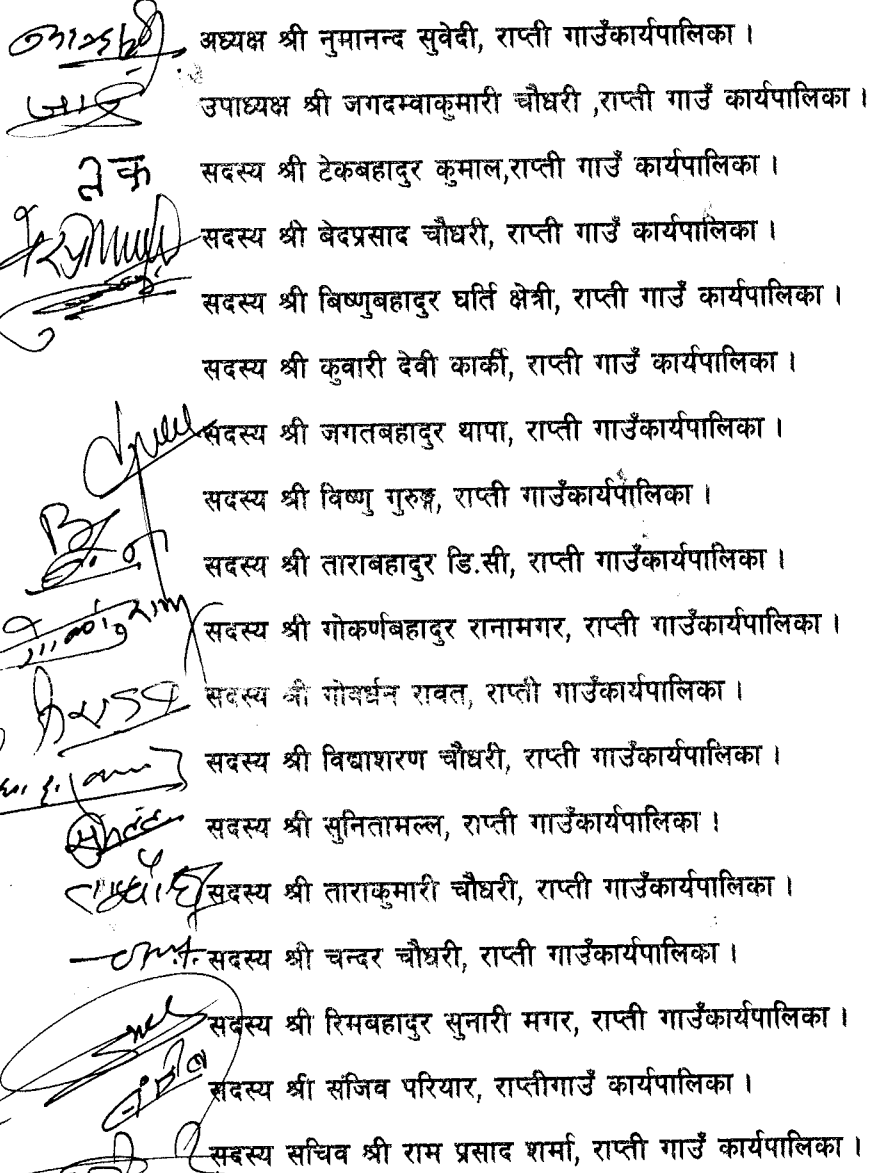 अध्यक्ष श्री नुमानन्द सुवेदी, राप्ती गाउँकार्यपालिका ।
उपाध्यक्ष श्री जगदम्वाकुमारी चौधरी ,राप्ती गाउँ कार्यपालिका ।
टेक सदस्य श्री टेकबहादुर कुमाल,राप्ती गाउँ कार्यपालिका ।
सदस्य श्री बेदप्रसाद चौधरी, राप्ती गाउँ कार्यपालिका ।
सदस्य श्री बिष्णुबहादुर घर्ति क्षेत्री, राप्ती गाउँ कार्यपालिका ।
सदस्य श्री कुवारी देवी कार्की, राप्ती गाउँ कार्यपालिका ।
सदस्य श्री जगतबहादुर थापा, राप्ती गाउँकार्यपालिका ।
सदस्य श्री विष्णु गुरुङ्ग, राप्ती गाउँकार्यपालिका ।
सदस्य श्री ताराबहादुर डि.सी, राप्ती गाउँकार्यपालिका ।
सदस्य श्री गोकर्णबहादुर रानामगर, राप्ती गाउँकार्यपालिका ।
सदस्य श्री गोबर्धन रावत, राप्ती गाउँकार्यपालिका ।
सदस्य श्री विद्याशरण चौधरी, राप्ती गाउँकार्यपालिका ।
सदस्य श्री सुनितामल्ल, राप्ती गाउँकार्यपालिका ।
सदस्य श्री ताराकुमारी चौधरी, राप्ती गाउँकार्यपालिका ।
सदस्य श्री चन्दर चौधरी, राप्ती गाउँकार्यपालिका ।
सदस्य श्री रिमबहादुर सुनारी मगर, राप्ती गाउँकार्यपालिका ।
सदस्य श्री संजिव परियार, राप्तीगाउँ कार्यपालिका ।
सदस्य सचिव श्री राम प्रसाद शर्मा, राप्ती गाउँ कार्यपालिका ।